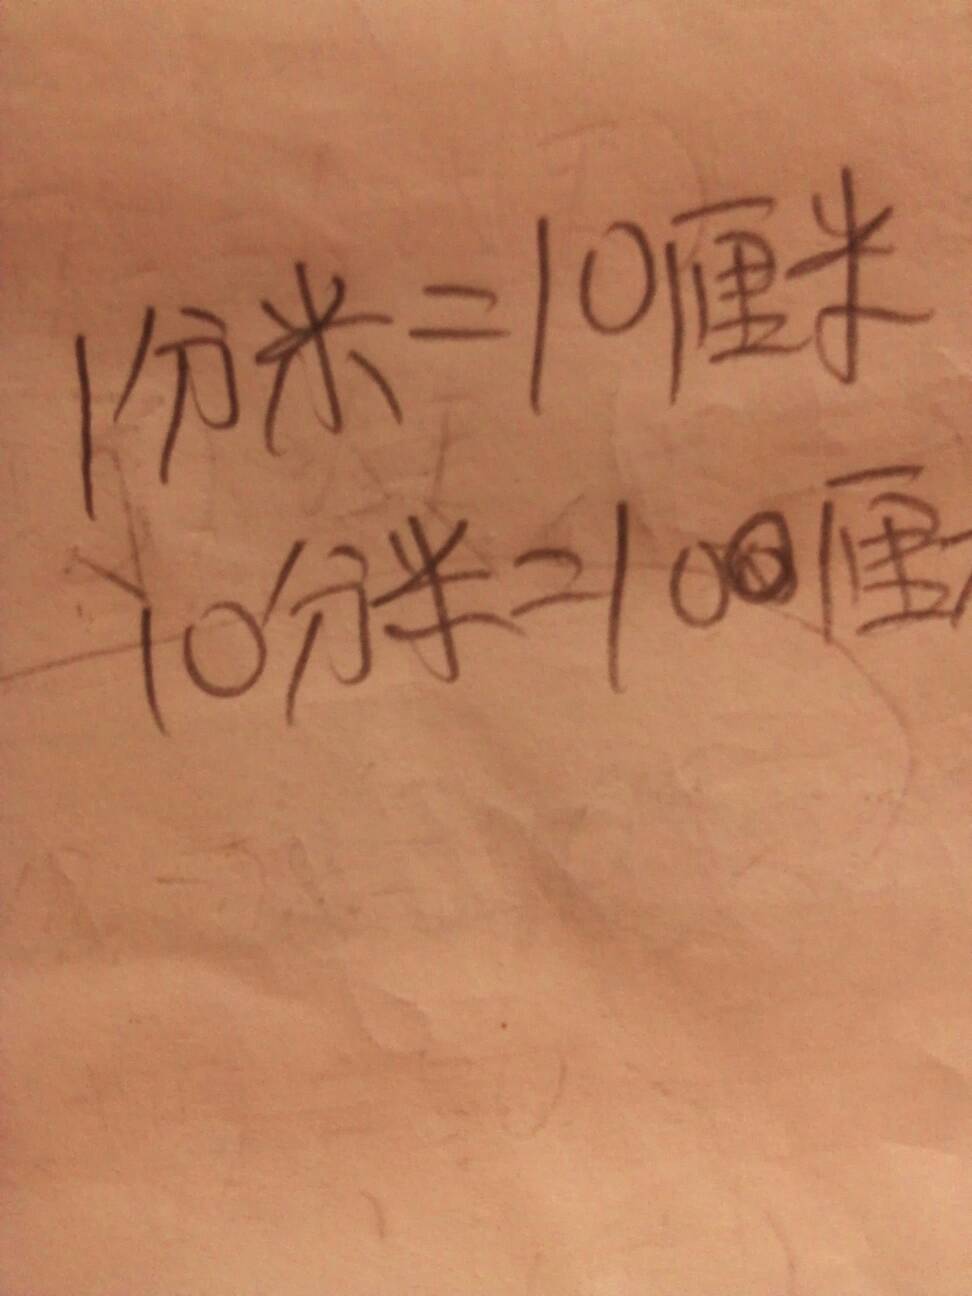 1分米=10厘米
10分米=100厘